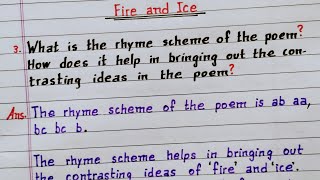 Fire and Ice
3. What is the rhyme scheme of the poem?
How does it help in bringing out the con-
trasting ideas in the poem?
Ans. The rhyme scheme of the poem is ab aa,
bc bc b.
The rhyme scheme helps in bringing out
the contrasting ideas of 'fire' and 'ice'.